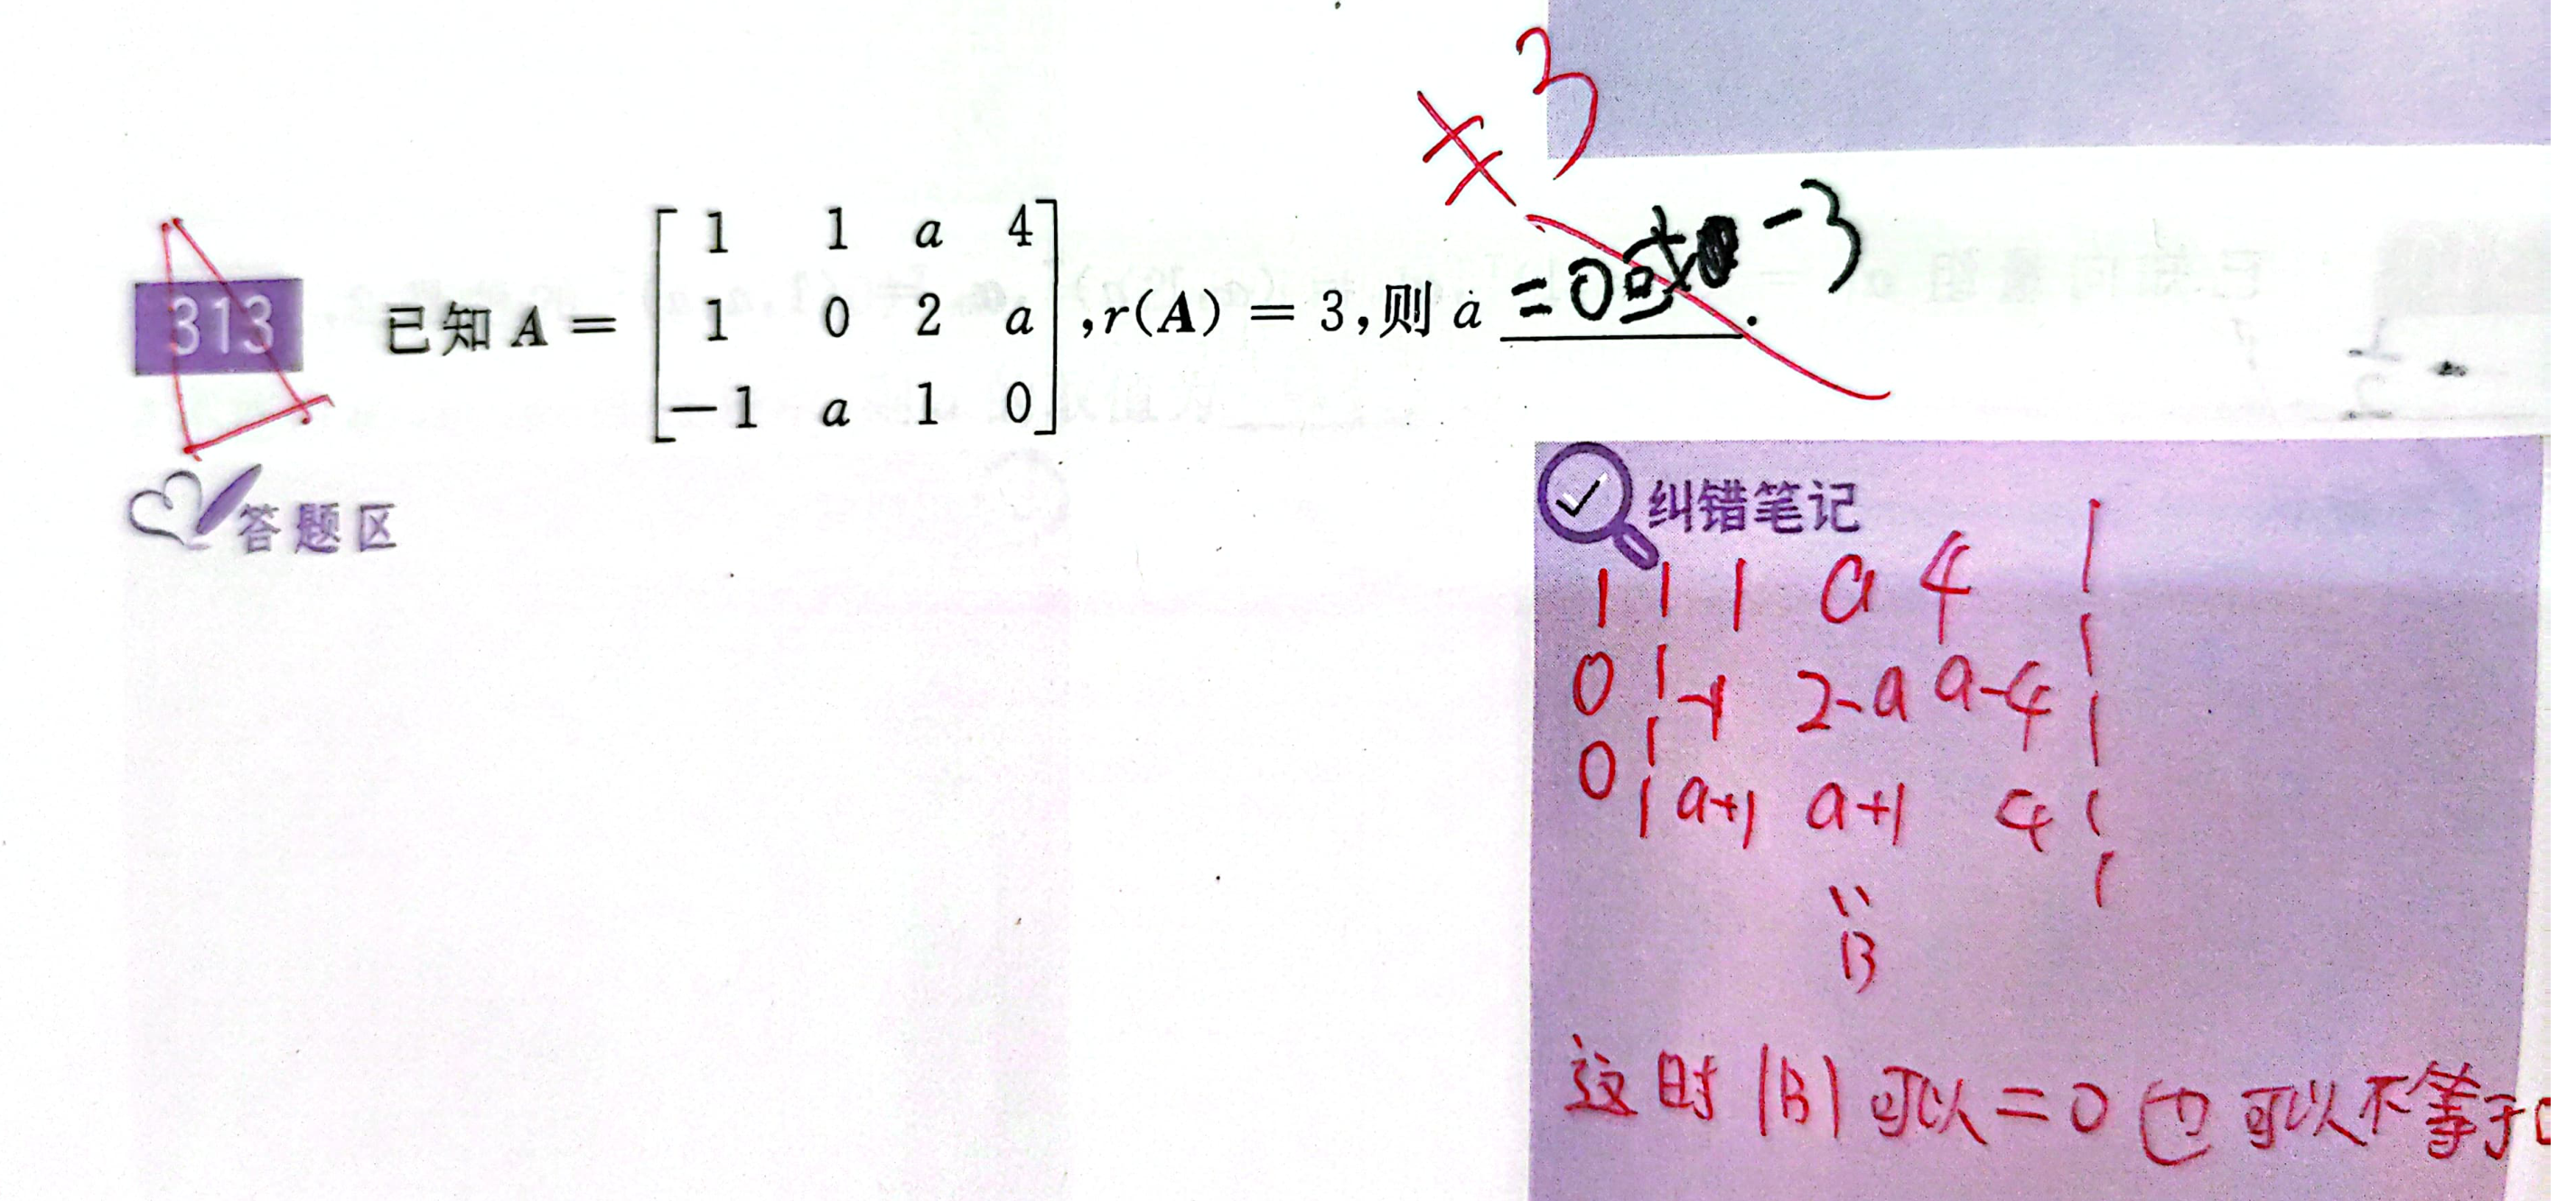 ≠ 3
313 已知 A = [ 1 1 a 4
1 0 2 a
-1 a 1 0 ], r(A) = 3, 则 a =0或 -3 .
答题区
纠错笔记
1 1 a 4
0 -1 2-a a-4
0 a+1 a+1 4
B
这时 |B| 可以 = 0 也可以不等于0